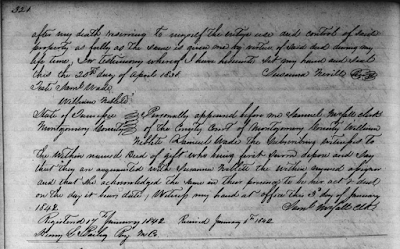 320
after my death reserving to myself the entire use and control of said
property as fully as the same is given me by virtue of said and during my
life time, In testimony whereof I have hereunto set my hand and seal
this the 20th day of April 1831. Susanna Niblett
Teste Saml Wade
William Niblett
State of Tennessee Personally appeared before me Samuel McFall clerk
Montgomery County of the County Court of Montgomery County William
Niblett & Samuel Wade the Subscribing witnesses to
the within named Deed of gift who being first sworn depose and say
that they are acquainted with Susanna Niblett the within signed
and that she acknowledged the same in their presence to be her act & deed
on the day it bears date, Witness my hand at office this 3d day of January
1842. Saml McFall Clk.
Registered 17th January 1842 Received January 1842
Henry C. Bailey Reg M.C.